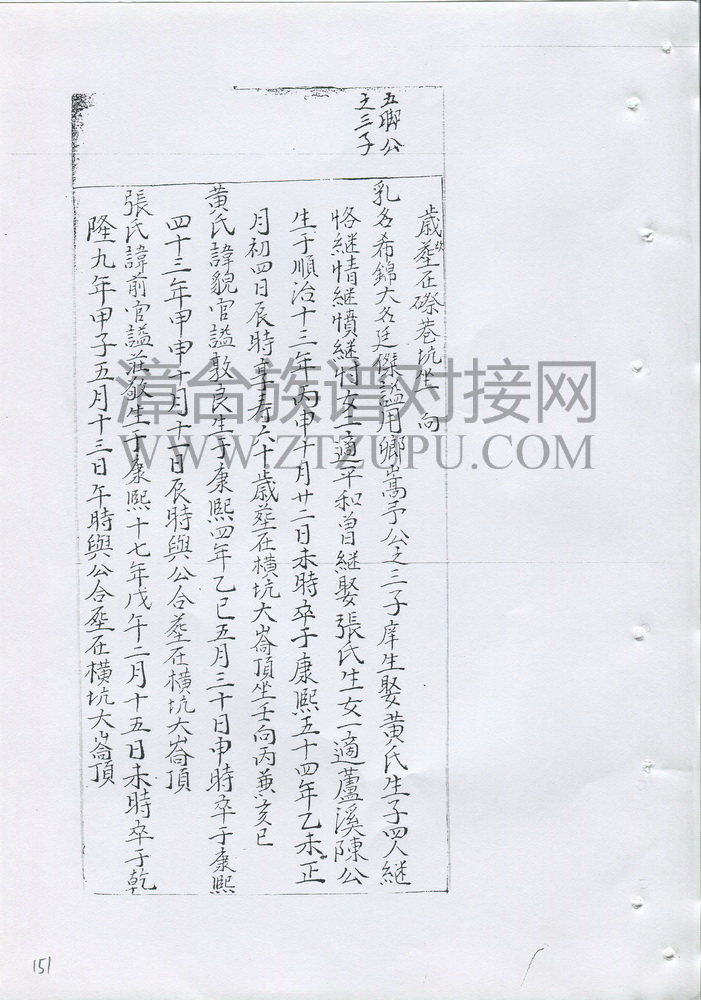 五聯公
之三子
歲塟在磜巷坑坐 向
乳名希錦大名廷傑謚用卿嵩予公之三子庠生娶黃氏生子四人継
恪継情継憤継忖女一適平和曾継娶張氏生女一適蘆溪陳公
生于順治十三年丙申十月廿二日未時卒于康熙五十四年乙未正
月初四日辰時享寿六十歲塟在橫坑大崙頂坐壬向丙兼亥巳
黃氏諱貌官謚敦良生于康熙四年乙巳五月三十日申時卒于康熙
四十三年甲申十月十一日辰時與公合塟在橫坑大崙頂
張氏諱前官謚莊敬生于康熙十七年戊午二月十五日未時卒于乾
隆九年甲子五月十三日午時與公合塟在橫坑大崙頂
漳台族谱对接网
WWW.ZTZUPU.COM
151